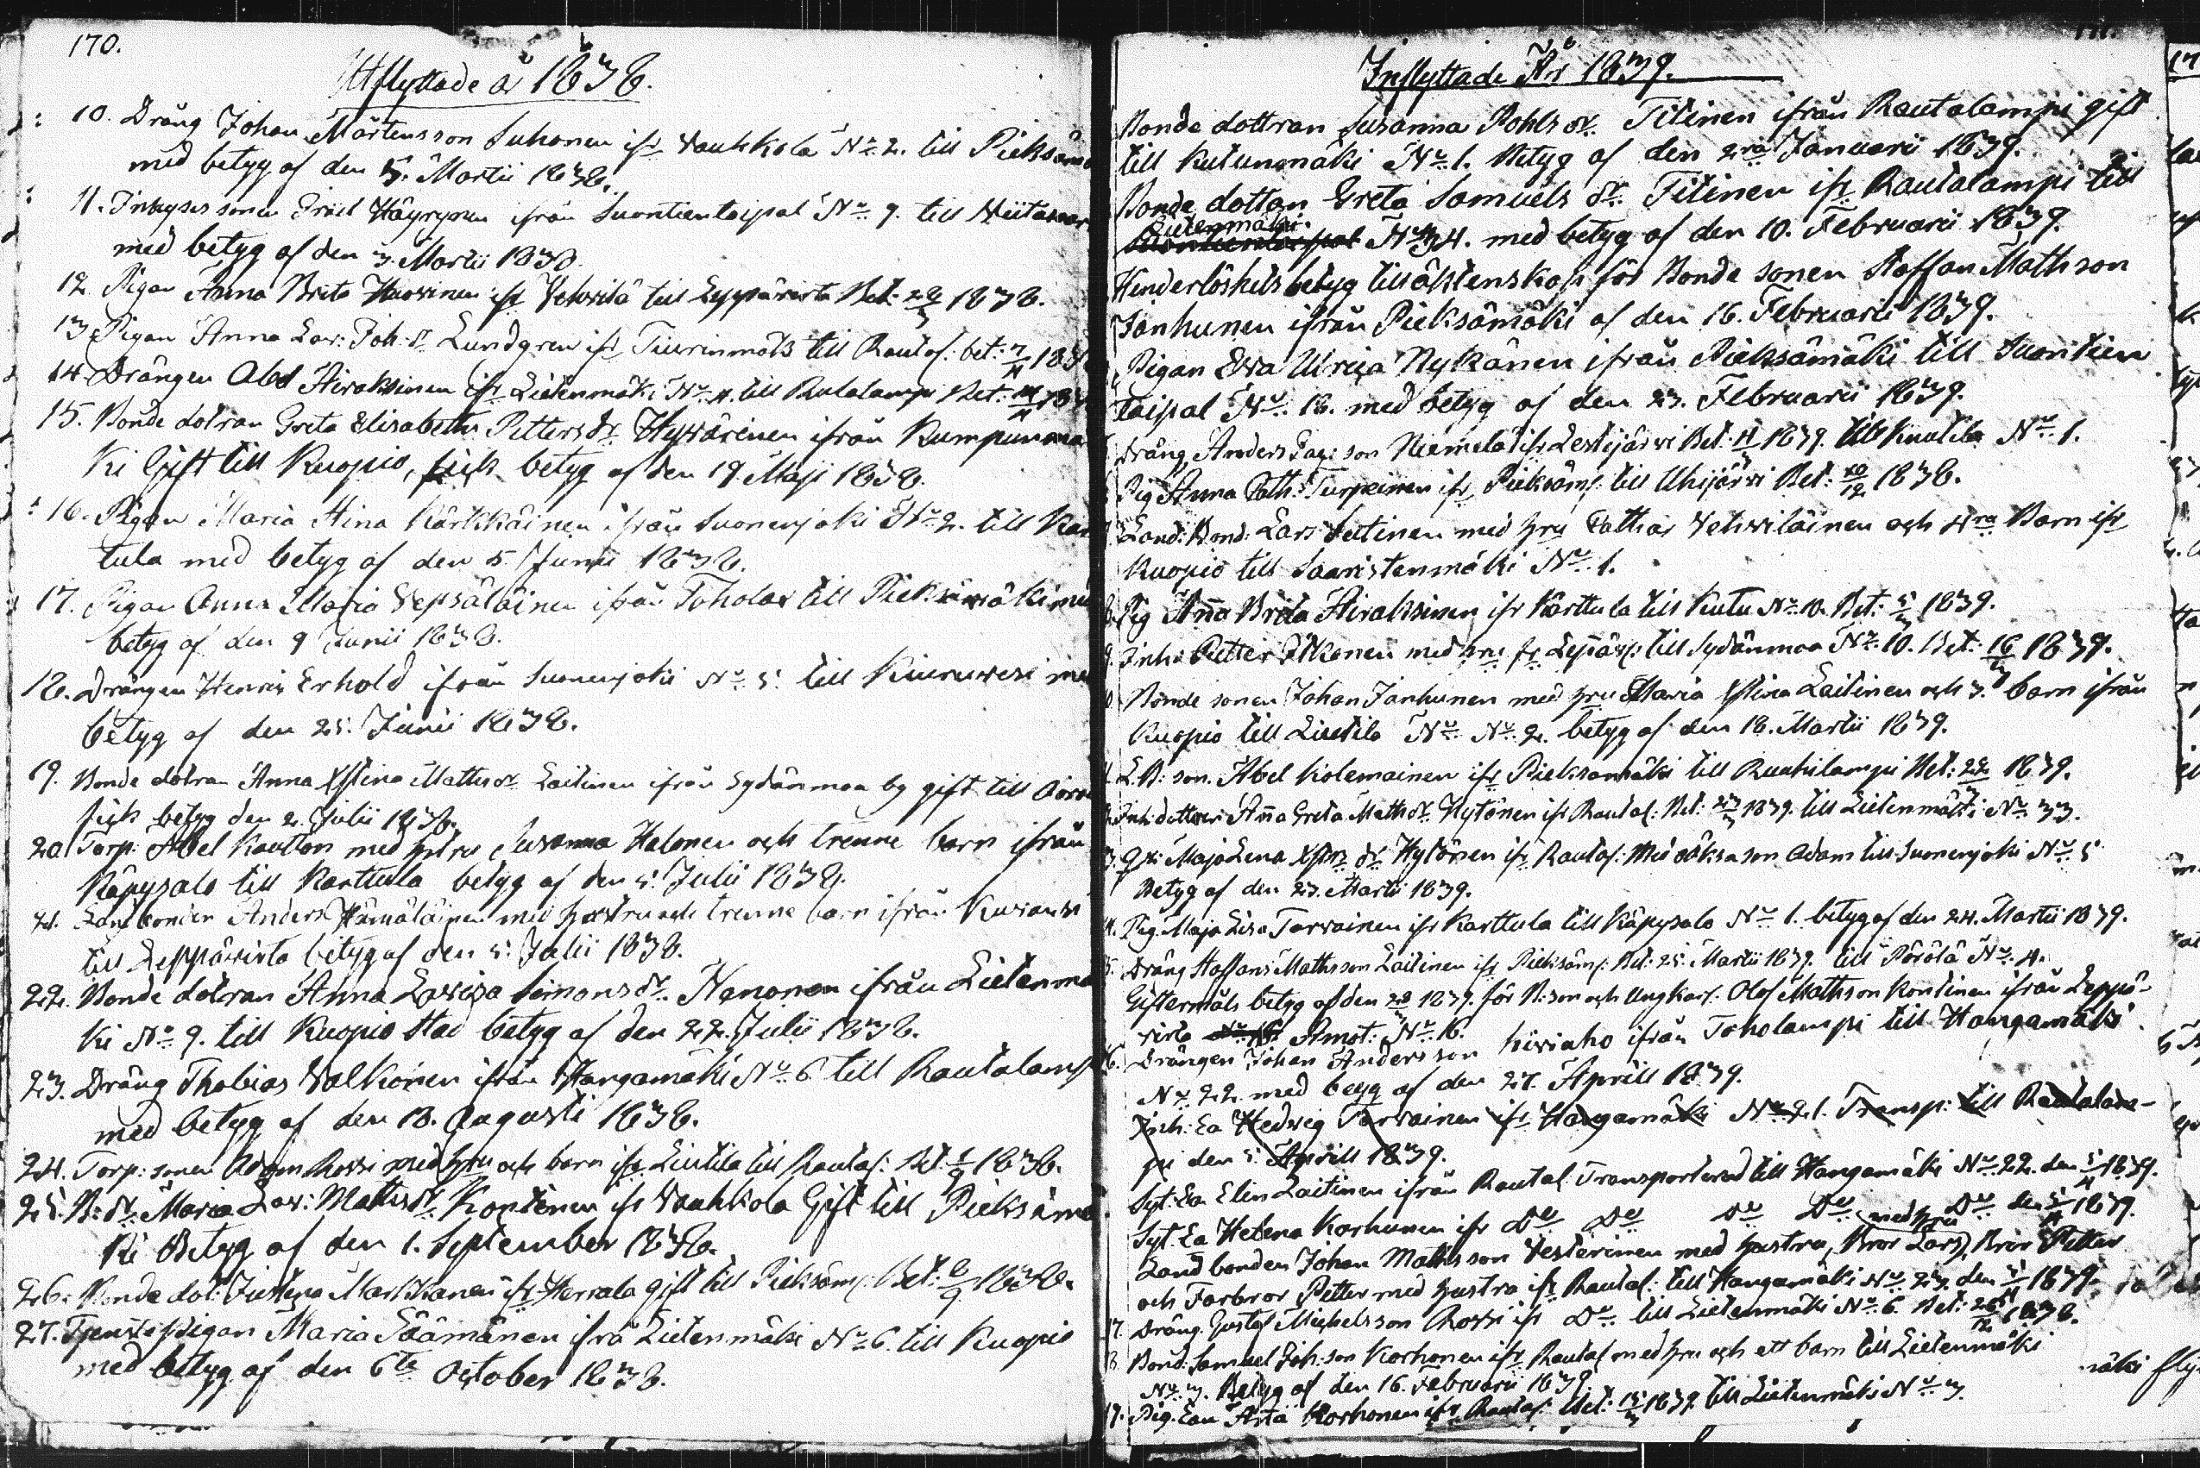 170.
Utflyttade år 1838.
10. Dräng Johan Mårtensson Suhonen ifr Vauhkola No 2. till Pieksäm
med betyg af den 5. Martii 1838.
11. Inhyses sonen Gräyrynen ifrån Suontientaipal No 9. till Viitasaar
med betyg af den 3. Martii 1838
12. Pigan Anna Brita Huovinen ifr Vehvilä till Leppävirta Bet: 28/3 1838.
13 Pigan Anna Lov: Joh: dr Lundgren ifr Tiurinmäki till Rautal: bet: 7/4 183
14. Drängen Abel Hirakinen ifr Lietenmäki No 4. till Rutalampi Bet: 14/4 183
15. Bonde dotran Greta Elisabeth Petters dr Hyvärinen ifrån Kumpumä
ki Gift till Kuopio, fick betyg af den 19. Maji 1838.
16. Pigan Maria Stina Kärkkäinen ifrån Suonenjoki No 2. till Kar
tula med betyg af den 5. Junii 1838.
17. Pigan Anna Maria Vepsäläinen ifrån Toholax till Pieksämäki
betyg af den 9 Junii 1838.
18. Drängen Henric Erhold ifrån Suonenjoki No 5. till Kiuruvesi me
betyg af den 25. Junii 1838.
19. Bonde dotran Anna Xstina Mathsdr Laitinen ifrån Sydänmaa by gift till
fick betyg den 2. Julii 1838.
20. Torp: Abel Kautton med hstru Susanna Halonen och trenne barn ifrån
Käpysalo till Karttula betyg af den 5. Julii 1838.
21. Landbonden Anders Hämäläinen med hustru och trenne barn ifrån
till Leppävirta betyg af den 5. Julii 1838.
22. Bonde dotran Anna Lovisa Simonsdr. Nanonen ifrån Lietenmä
ki No 9. till Kuopio stad betyg af den 22. Julii 1838.
23. Dräng Thobias Valkonen ifrån Hangamäki No 6 till Rautalamp
med betyg af den 18. Augusti 1838.
24. Torp: sonen Adam Rossi med hru och barn ifr Liutila till Rautal: Bet. 1/9 1838.
25. B: dr Maria Lov: Maths dr Kontinen ifr Vauhkola Gift till Pieksämä
ki Betyg af den 1. September 1838.
26. Bonde dot: Markkanen ifr Herrala gift till Pieksäm: Bet: 8/9 1838.
27. Tjenstepigan Maria Säämänen ifrå Lietenmäki No 6. till Kuopio
med betyg af den 6te October 1838.
Inflyttade År 1839.
Bonde dottran Susanna Pohls dr. Titinen ifrån Rautalampi gift
till Kutunmäki No 1. Betyg af den 2ra Januarii 1839.
Bonde dottan Greta Samuels dr. Titinen ifr Rautalampi till
Lietenmäki.
No 34. med betyg af den 10. Februarii 1839.
Hinderlöshets betyg till äktenskap för Bonde sonen Staffan Mathson
Janhunen ifrån Pieksämäki af den 16. Februarii 1839.
Pigan Ewa Ulrica Nykänen ifrån Pieksämäki till Suontien
taipal No 18. med betyg af den 23. Februarii 1839.
Dräng Anders Zag: son Niemelä ifr Lestijärvi Bet: 1839. till Knutila No 1.
Pig Anna Cath: Turpeinen ifr Pieksäm: till Uhijärvi Bet: 20/12 1838.
Land: Bond: Lars Jutinen med hru Cathar Vehviläinen och 4ra Barn ifr
Kuopio till Saaristenmäki No 1.
Pig Aña Brita Hirakinen ifr Karttula till Kutu No 10. Bet: 5/3 1839.
9. Inh: Petter Itkonen med hru fr Leppäv: till Sydänmaa No 10. Bet: 16/3 1839.
Bonde sonen Johan Janhunen med hru Maria Xstina Laitinen och 3. barn ifrån
Kuopio till Liutila No No 2. betyg af den 18. Martii 1839.
L.B: son. Abel Kolemainen ifr Pieksämäki till Rutilampi Bet: 22/3 1839.
Inh: dottren Aña Greta Maths dr. Hytönen ifr Rautal: Bet: 23/3 1839. till Lietenmäki No 33.
Maja Lena Xstrs dr Hytönen ifr Rautal: Med oäkta son Adam till Suonenjoki No 5
Betyg af den 23. Martii 1839.
Pig: Maja Lisa Tarvainen ifr Karttula till Käpysalo No 1. betyg af den 24. Martii 1839.
Dräng Staffan Mathsson Laitinen ifr Pieksäm: Bet: 25. Martii 1839. till Pörölä No 4.
Giftermåls betyg af den 28/3 1839. för B: son och Ungkarl: Olof Mathson Kontinen ifrån Leppä-
virta Amot: No 16.
16. Drängen Johan Andersson Kiviaho ifrån Toholampi till Hangamäki
No 22. med betyg af den 27. Aprill 1839.
Inh: Ea Hedvig Tarvainen ifr Hangamäki No 21. Transp: till Rautalam-
pi den 5. Aprill 1839.
Syt: Ea Elin Laitinen ifrån Rautal Transporterad till Hangamäki No 22. den 5/4 1839.
Syt. Ea Helena Korhunen ifr Do Do Do Do Do den 5/4 1839.
med hru
Landbonden Johan Mathsson Vesterinen med hustru, Bror Lars, Bror Petter
och Farbror Petter med hustru ifr Rautal: till Hangamäki No 23. den 5/4 1839.
17. Dräng Gustaf Michelsson Rossi ifr Do till Lietenmäki No 6. Bet: 26/12 1838.
18. Bond: Samuel Joh: son Korhonen ifr Rautal med hru och ett barn till Lietenmäki
No 3. Betyg af den 16. Februarii 1839.
19. Pig. Ean Asta Korhonen ifr Rautal: Bet: 15/3 1839 till Lietenmäki No 3.